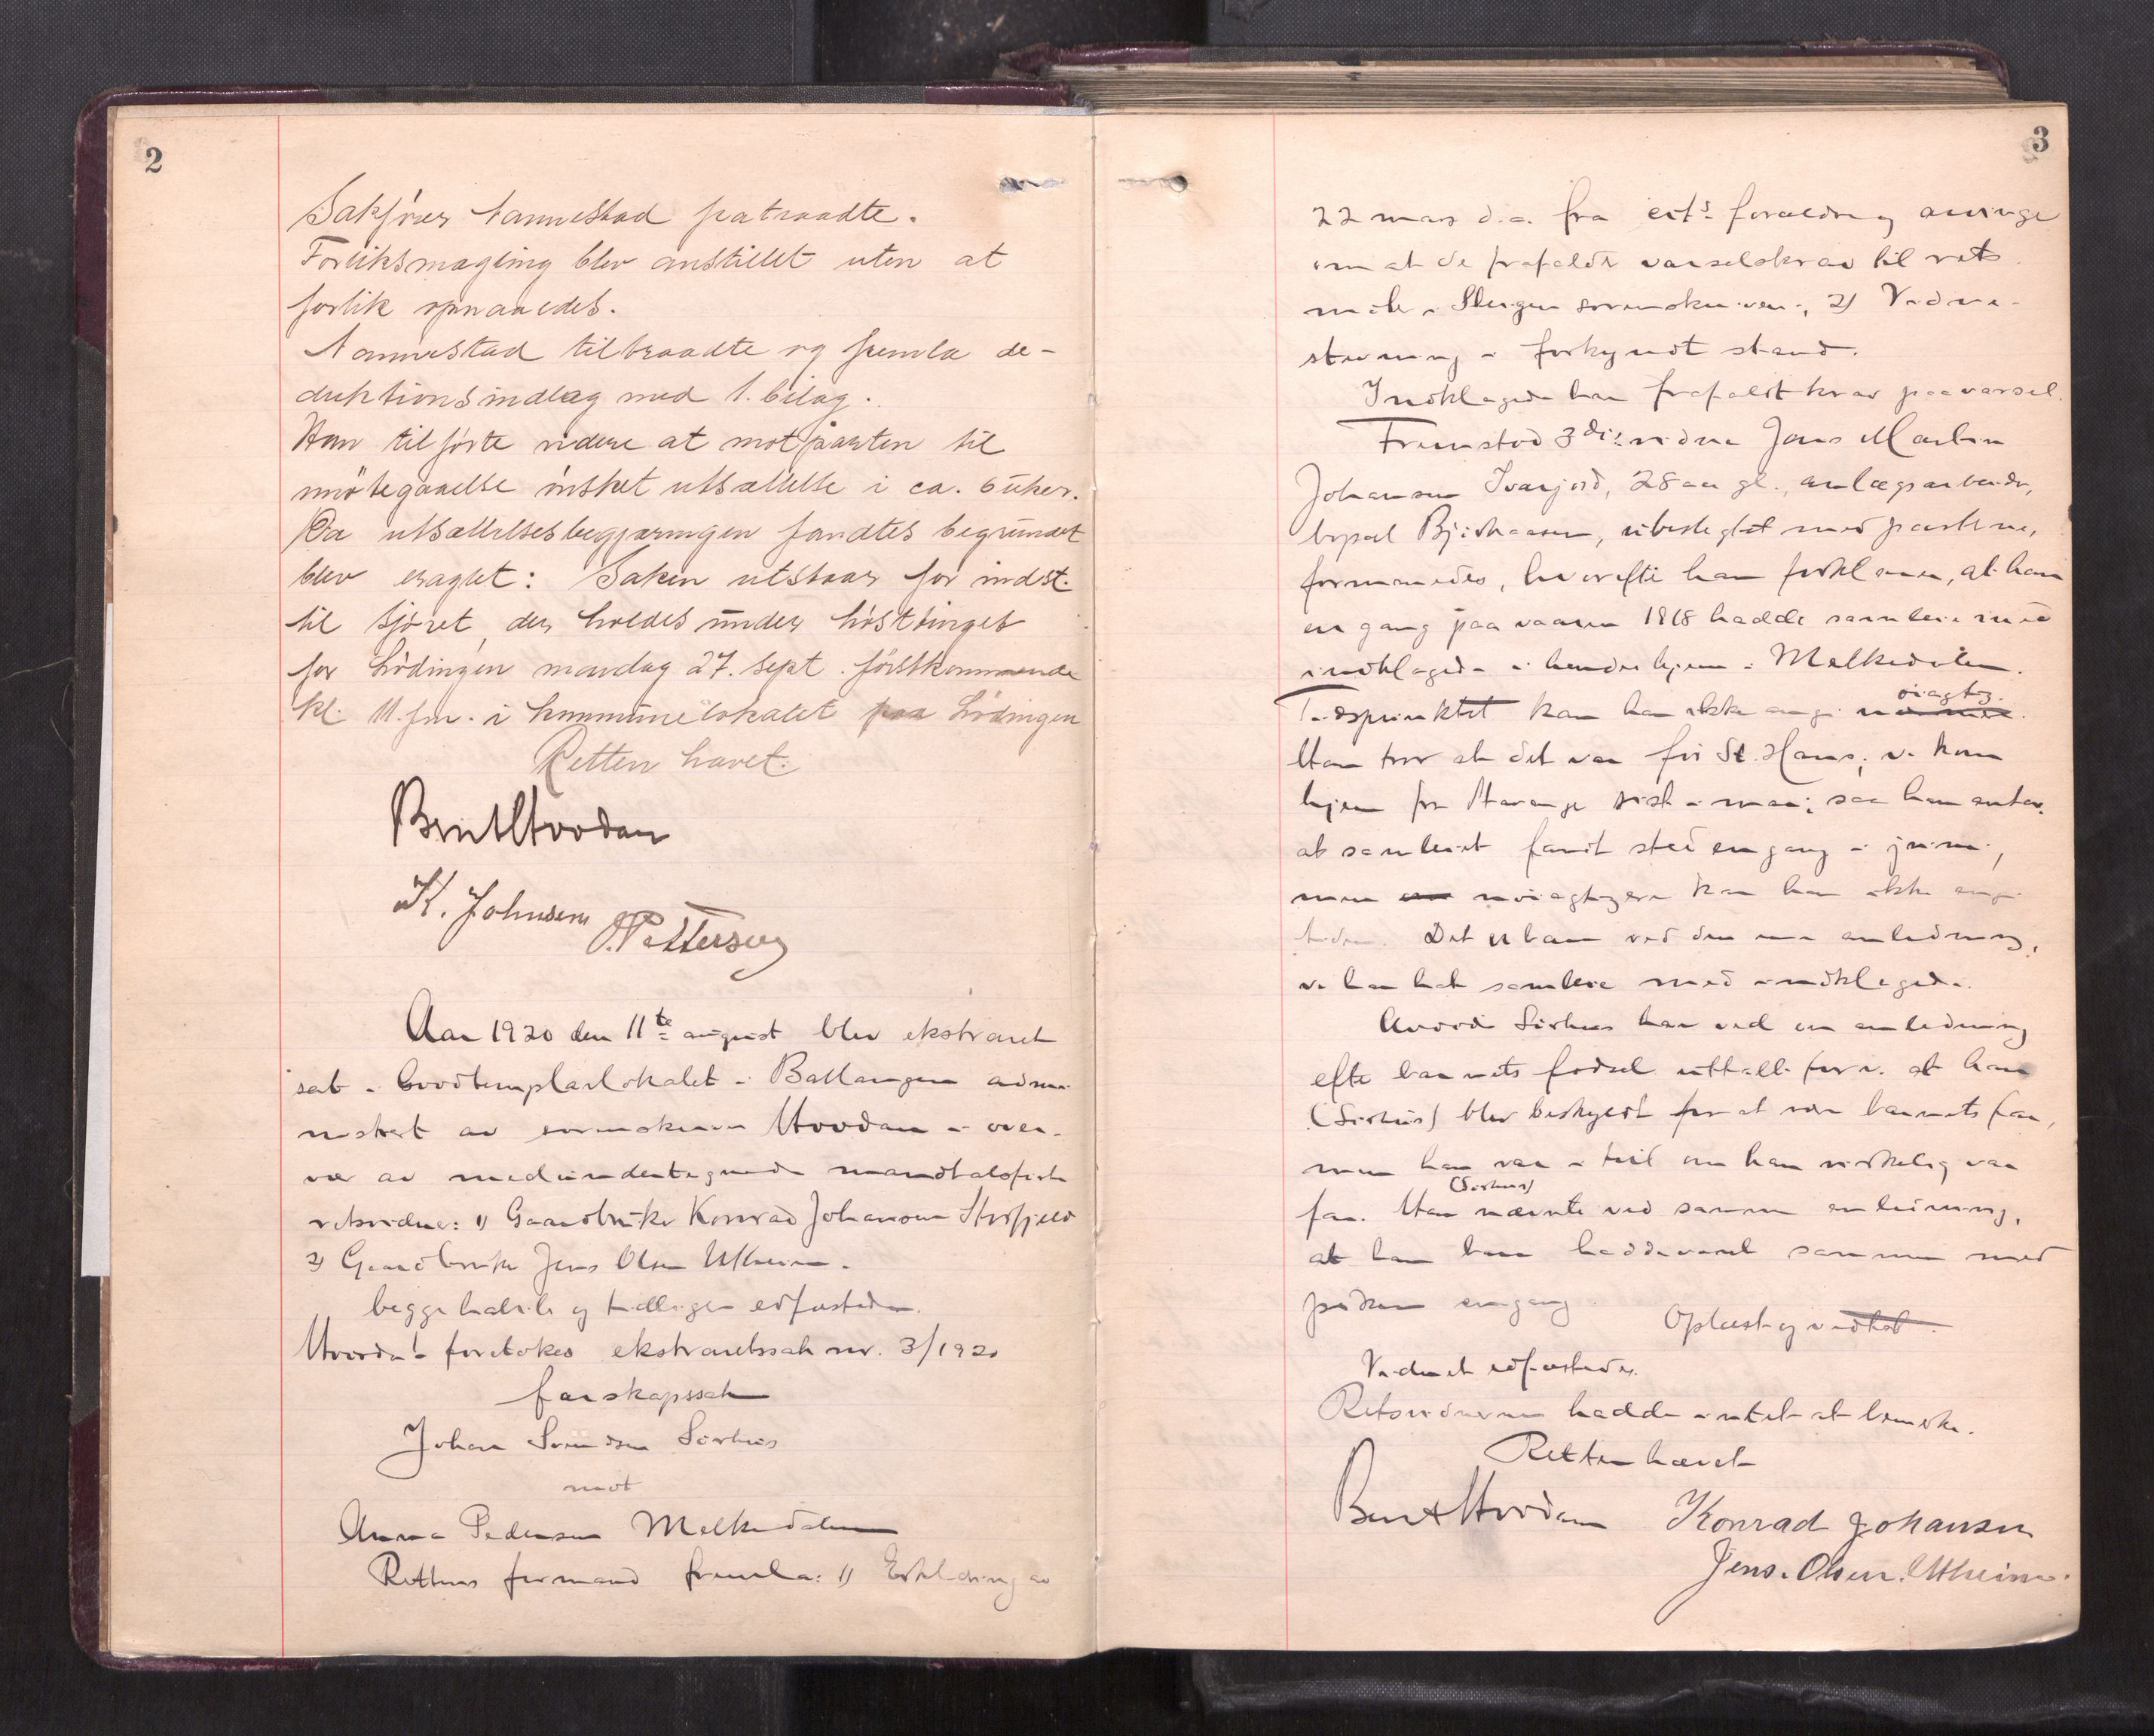 2
Sakfører Nannestad patraadte.
Forliksmægling blev anstillet uten at
forlik opnaaedes.
Nannestad tilbraadte og fremla de-
duktionsindlæg med 1. bilag.
Han tilførte videre at motparten til
imøtegaaelse ønsket utsættelse i ca. 6 uker.
Da utsættelsesbegjæringen fandtes begrundet
blev eragtet: Saken utstaar for indst.
til sjøret, der holdes under høsttinget
for Lødingen mandag 27. sept. førstkommende
kl. 11. fm. i kommunelokalet paa Lødingen
Retten hævet.
K. Johnsen
J. Pettersen
Aar 1920 den 11te august blev ekstraret
sat i Goodtemplarlokalet i Ballangen admi-
nistrert av sorenskriver Hvoodan i over-
vær av medundertegnede mandtalsførte
retsvidner: 1) Gaardbruker Konrad Johansen
2) Gaardbruker Jens Olsen Utheim.
begge habile og tidligere edfæstede.
foretokes ekstraretssak nr. 3/1920
farskapssak
Johan Sørhus
mot
Anna Pedersen Melkedalen
Rettens formand fremla: 1) Erklæring av
3
22 mars d.a. fra cits forældre og
om at de frafalder varselskrav til rets
møte i Steigen sorenskriveri, 2) Vidne-
stevning i forkyndt stand.
Indklagede har frafaldt krav paa varsel.
Fremstod 3die vidne Jens Martin
Johansen Ivarjord, 28 aar gl., anlægsarbeider,
bopæl, ubeslegtet med partene,
formanedes, hvorefter han forklarer, at han
en gang paa vaaren 1918 hadde samleie med
indklagede i hendes hjem i Melkedalen.
øiagtig.
Tidspunktet kan han ikke angi nærmere.
Han tror at det var før St. Hans; v. kom
hjem fra Stavanger sist i mai; saa han antar
at samleiet fandt sted engang i juni,
men nøiagtigere kan han ikke angi
tiden. Det er bare ved den ene anledning,
v. har hat samleie med indklagede.
Sørhus har ved en anledning
efter barnets fødsel uttalt for v. at han
(Sørhus) blev beskyldt for at være barnets far,
men han var i tvil om han virkelig var
(Sørhus)
far. Han nævnte ved samme anledning,
at han bare hadde været sammen med
piken engang
Oplæst og vedtat.
Vidnet edfæstedes.
Retsvidnerne hadde intet at bemerke.
Retten hævet
Konrad Johansen
Jens. Olsen. Utheim.